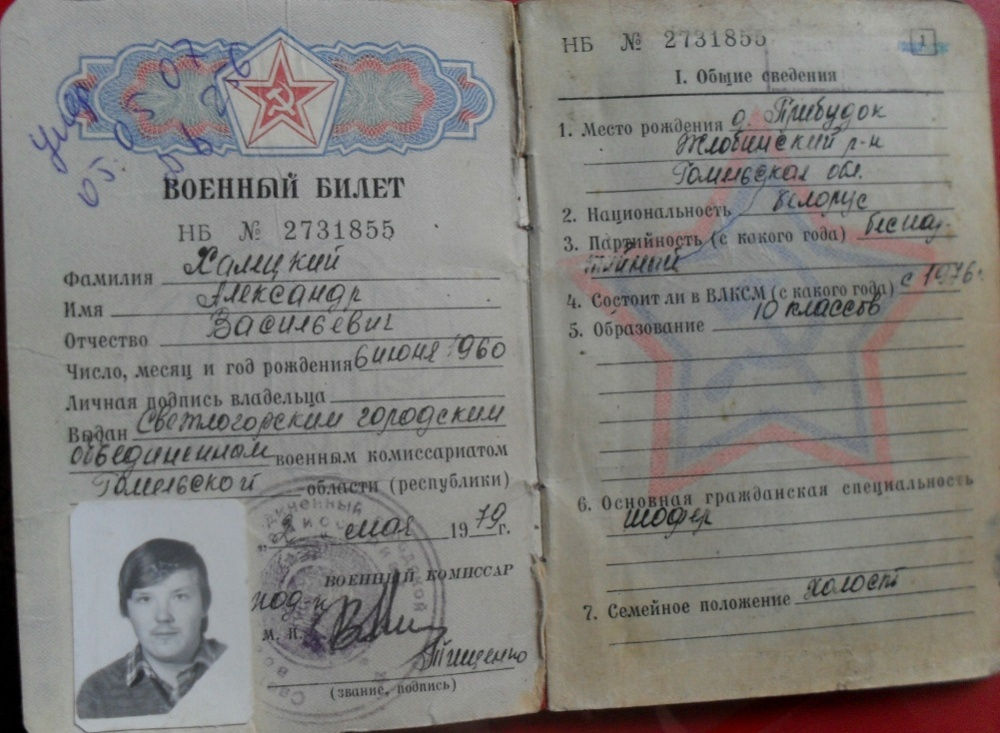 Умер
05.05.07
ВОЕННЫЙ БИЛЕТ
НБ № 2731855
Фамилия Халецкий
Имя Александр
Отчество Васильевич
Число, месяц и год рождения 6 июня 1960
Личная подпись владельца
Выдан Светлогорским городским
объединенном военным комиссариатом
Гомельской области (республики)
„2 мая 1979 г.
ВОЕННЫЙ КОМИССАР
подп-к
М. П.
Тищенко
(звание, подпись)
НБ № 2731855
1
I. Общие сведения
1. Место рождения д. Прибудок
Жлобинский р-н
Гомельская обл.
2. Национальность белорус
3. Партийность (с какого года) беспар-
тийный
4. Состоит ли в ВЛКСМ (с какого года) с 1976г.
5. Образование 10 классов
6. Основная гражданская специальность
шофер
7. Семейное положение холост